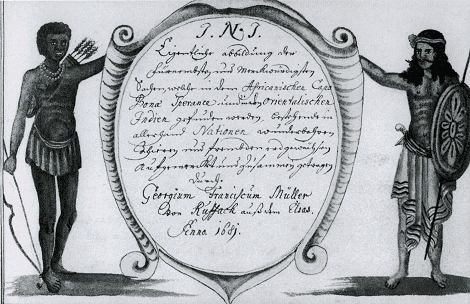 I. N. I.
Eigentliche abbildung der
Fürnembsten und Merckwürdigsten
Sachen, welche in dem Africanischen Capo
Bonæ Sperance und in Orientalischen
Indien gefunden werden, bestehende in
allerhand Nationen wunderbahren
Thieren und frembden erdgewächsen
Auffgemerckt und Zusammen getragen
Durch
Georgium Franciscum Müller
Von Ruffach auß dem Elsas.
Anno